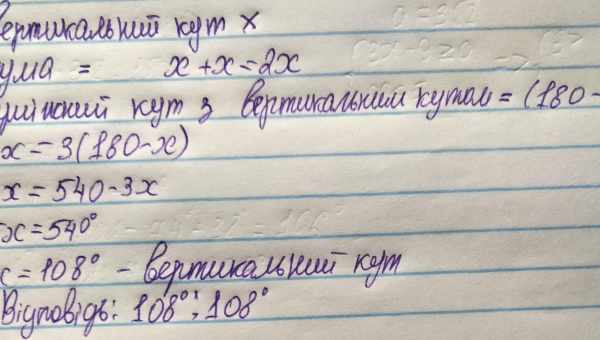 ертикальний кут x
ума = x + x = 2x
кут з вертикальним кутом = (180 -
x = 3(180 - x)
x = 540 - 3x
x = 540°
= 108° - вертикальний кут
Відповідь: 108°; 108°